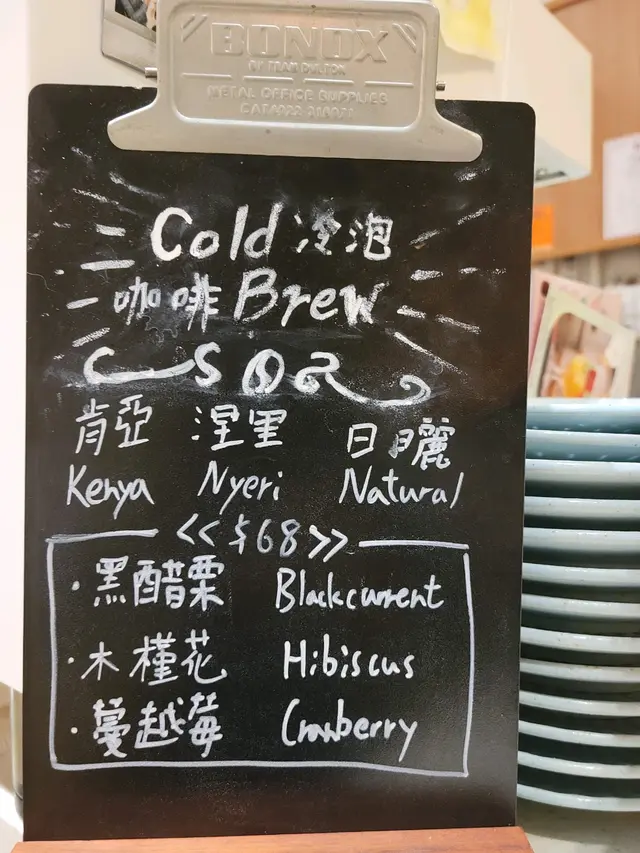 BONOX
BY FRAM DULTON
METAL OFFICE SUPPLIES
Cold 冷泡
咖啡 Brew
肯亞 涅里 日曬
Kenya Nyeri Natural
<<$68>>
·黑醋栗 Blackcurrent
·木槿花 Hibiscus
·蔓越莓 Cranberry